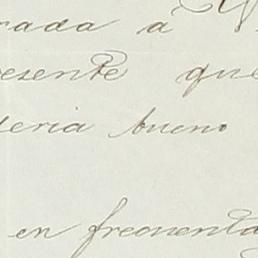 rada a
resente que
deria bueno
en frecuenta